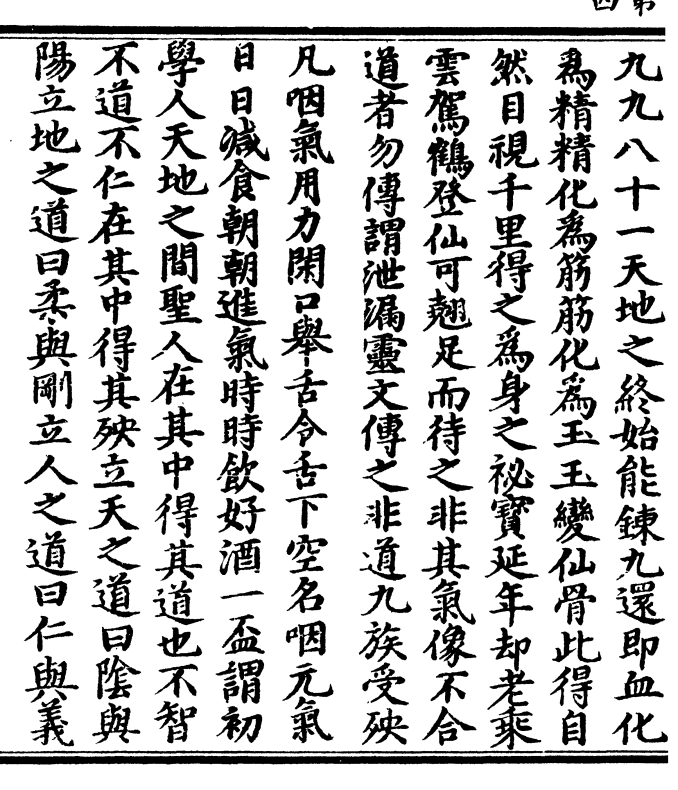 第四
九九八十一天地之終始能鍊九還即血化
為精精化為筋筋化為玉玉變仙骨此得自
然目視千里得之為身之祕寶延年却老乘
雲駕鶴登仙可翹足而待之非其氣像不合
道者勿傳謂泄漏靈文傳之非道九族受殃
凡咽氣用力閑口舉舌令舌下空名咽元氣
日日減食朝朝進氣時時飲好酒一盃謂初
學人天地之間聖人在其中得其道也不智
不道不仁在其中得其殃立天之道曰陰與
陽立地之道曰柔與剛立人之道曰仁與義